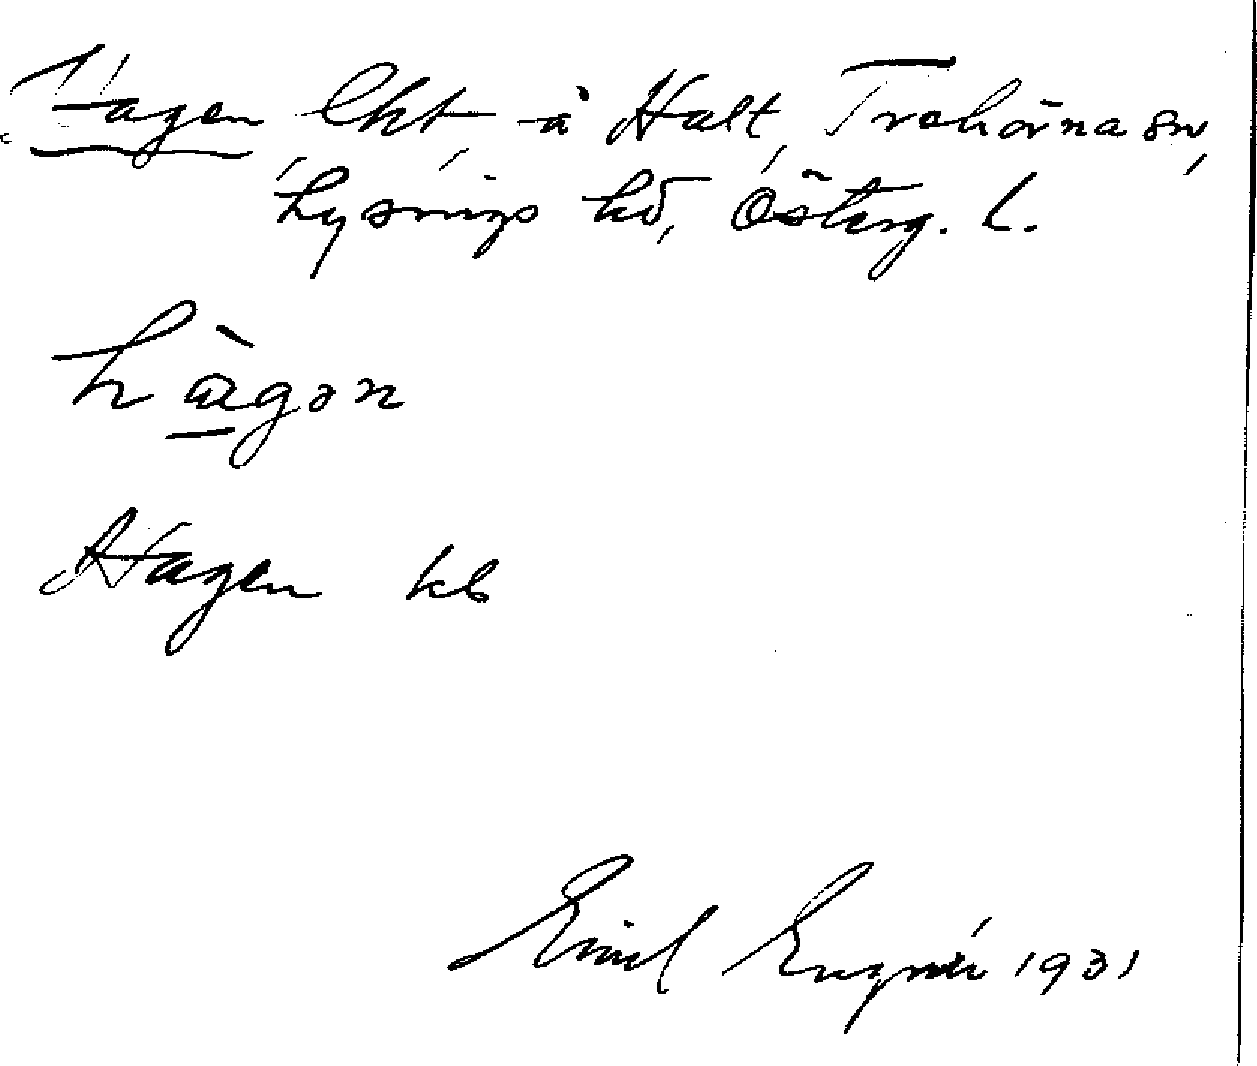 Hagen lht å Halt, Trehörna sn,
Lysings hd, Österg. l.
hàgən
Hagen kb
Emil Engnér 1931